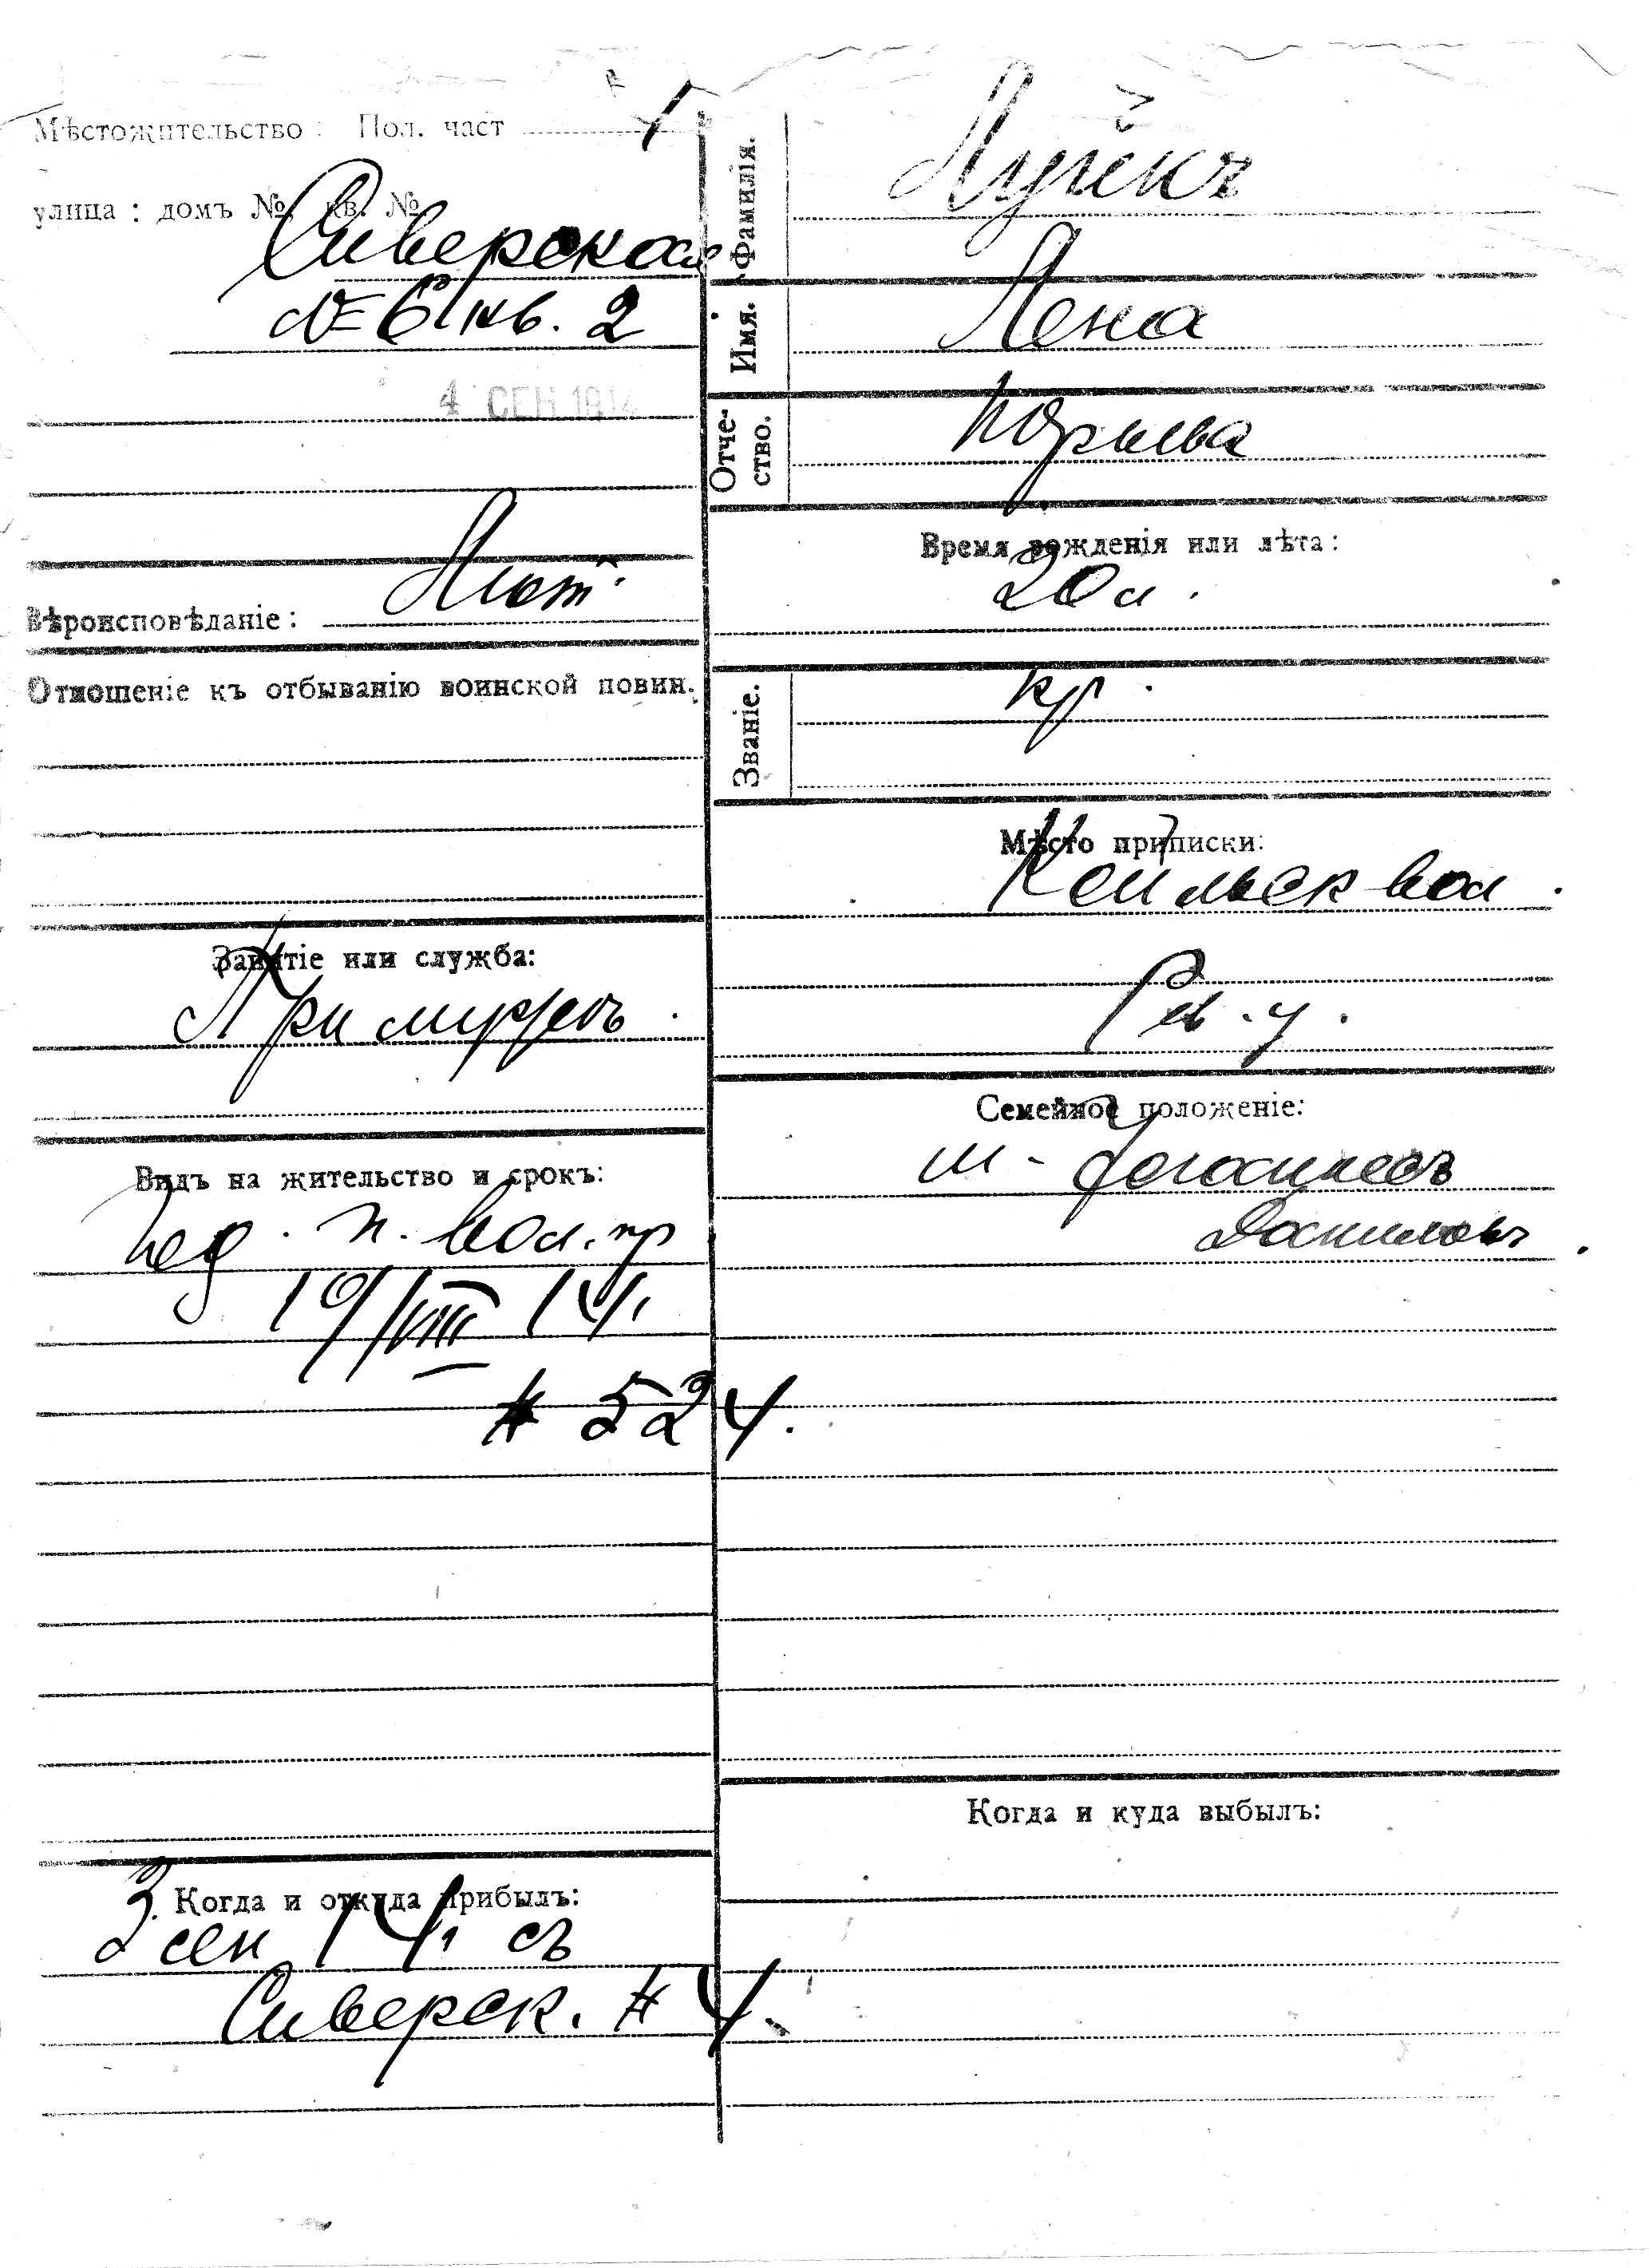 Мѣстожительство: Пол. част 1
улица: домъ № кв. №
Сиверская
№ 6 кв. 2
4 СЕН 1914
Вѣроисповѣданіе: Лют.
Отношеніе къ отбыванію воинской повин.
Занятіе или служба:
При мужѣ
Видъ на жительство и срокъ:
п. вол. пр
19/VIII 14.
# 524.
Когда и откуда прибылъ:
3 сен 14. съ
Сиверск. # 4.
Фамилія. Луйкъ
Имя. Лена
Отчество. Юрьева
Время рожденія или лѣта:
20 л.
Званіе. кр.
Мѣсто приписки:
вол.
Рев. у.
Семейное положеніе:
м - Іоганнесъ
Когда и куда выбылъ: